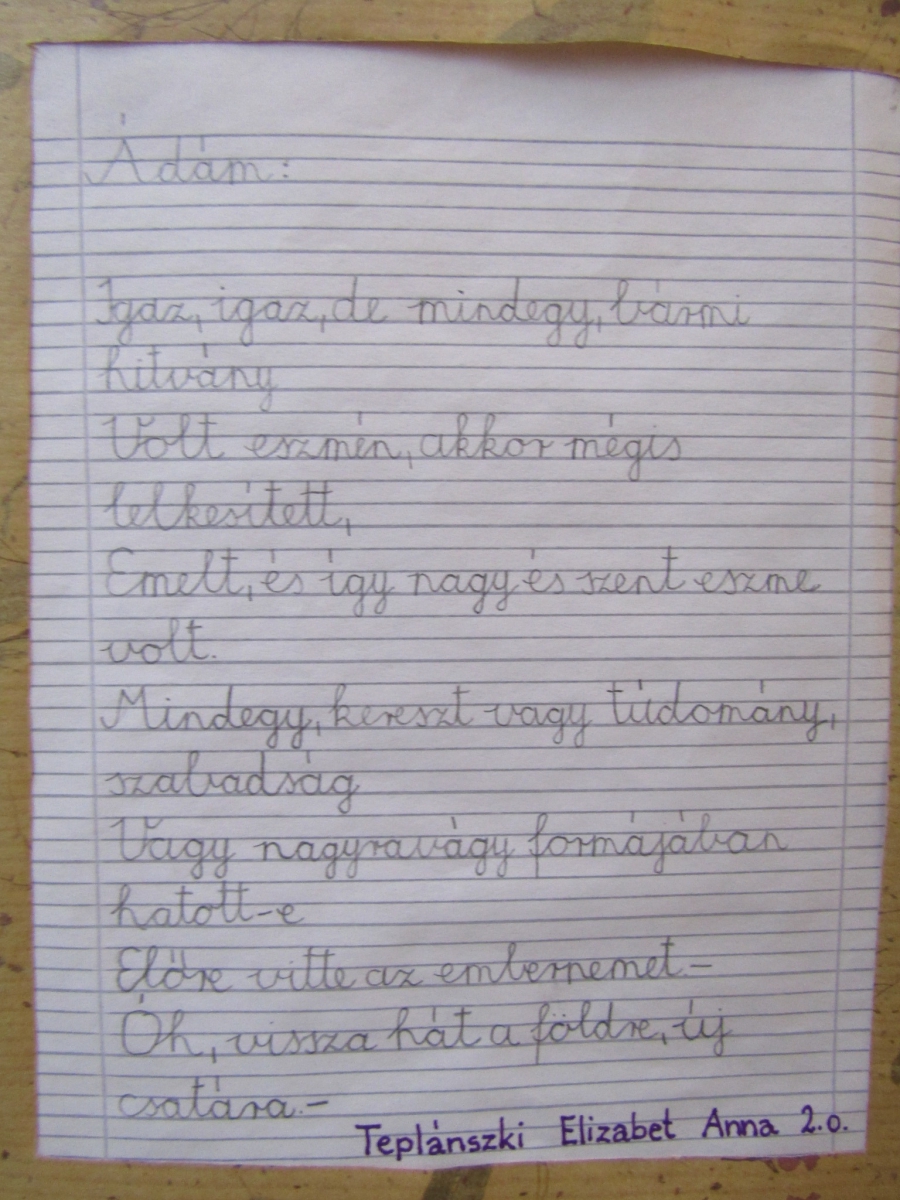 Ádám:
Igaz, igaz, de mindegy, bármi
hitvány
Volt eszmén, akkor mégis
lelkesített,
Emelt, és így nagy és szent eszme
volt.
Mindegy, kereszt vagy túdomány,
szabadság
Vagy nagyravágy formájában
hatott-e
Előre vitte az embernemet-
Óh, vissza hát a földre, új
csatára.-
Teplánszki Elizabet Anna 2.o.